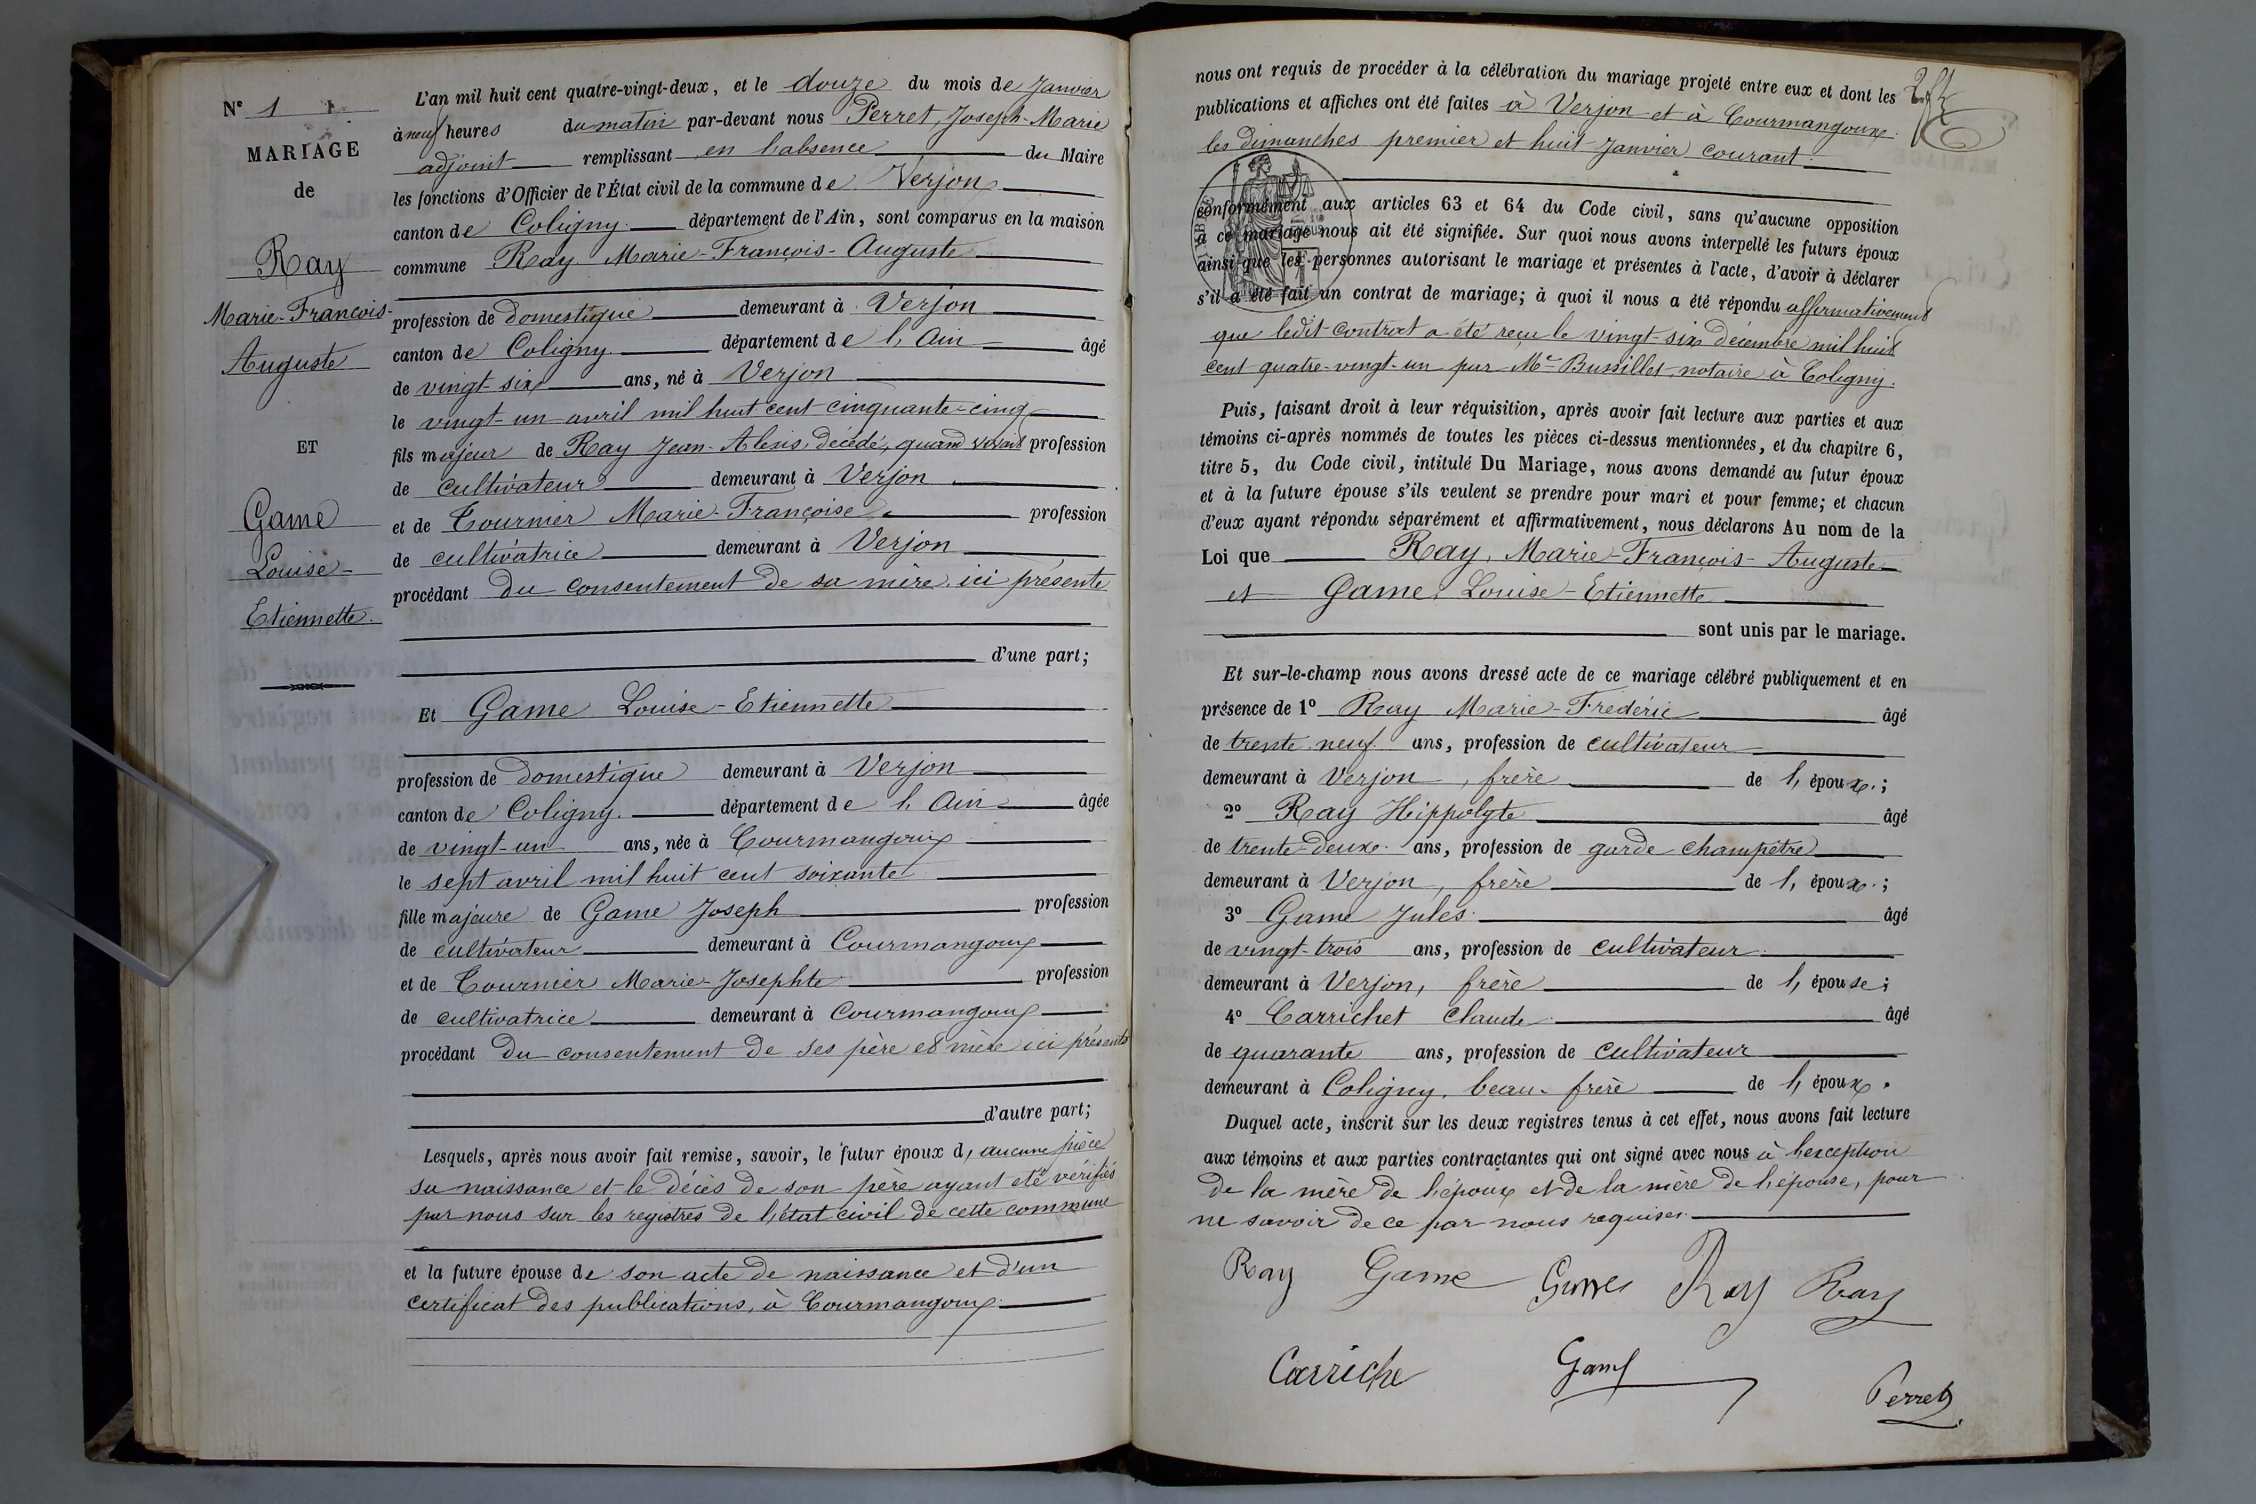 N° 1
MARIAGE
de
Ray
Marie-François-
Auguste
ET
Game
Louise-
Etiennette.
L'an mil huit cent quatre-vingt-deux, et le douze du mois de Janvier
à neuf heures du matin par-devant nous Perret, Joseph-Marie
adjoint remplissant en l'absence du Maire
les fonctions d'Officier de l'État civil de la commune de Verjon
canton de Coligny département de l'Ain, sont comparus en la maison
commune Ray Marie-François-Auguste
profession de domestique demeurant à Verjon
canton de Coligny département de l'Ain âgé
de vingt-six ans, né à Verjon
le vingt-un avril mil huit cent cinquante-cinq
fils majeur de Ray Jean-Alexis, décédé, quand vivait profession
de cultivateur demeurant à Verjon
et de Tournier Marie-Françoise profession
de cultivatrice demeurant à Verjon
procédant du consentement de sa mère ici présente
d'une part;
Et Game Louise-Etiennette
profession de domestique demeurant à Verjon
canton de Coligny. département de l'Ain âgée
de vingt-un ans, née à Courmangoux
le sept avril mil huit cent soixante
fille majeure de Game Joseph profession
de cultivateur demeurant à Courmangoux
et de Tournier Marie-Josephte profession
de cultivatrice demeurant à Courmangoux
procédant du consentement de ses père et mère ici présents
d'autre part;
Lesquels, après nous avoir fait remise, savoir, le futur époux d'aucune pièce
sa naissance et le décès de son père ayant été vérifiés
par nous sur les registres de l'état civil de cette commune
et la future épouse de son acte de naissance et d'un
certificat des publications, à Courmangoux.
nous ont requis de procéder à la célébration du mariage projeté entre eux et dont les
publications et affiches ont été faites à Verjon et à Courmangoux
les dimanches premier et huit Janvier courant.
conformément aux articles 63 et 64 du Code civil, sans qu'aucune opposition
à ce mariage nous ait été signifiée. Sur quoi nous avons interpellé les futurs époux
ainsi que les personnes autorisant le mariage et présentes à l'acte, d'avoir à déclarer
s'il a été fait un contrat de mariage; à quoi il nous a été répondu affirmativement
que ledit contrat a été reçu le vingt-six décembre mil huit
cent quatre-vingt-un par Me Bussillet, notaire à Coligny.
Puis, faisant droit à leur réquisition, après avoir fait lecture aux parties et aux
témoins ci-après nommés de toutes les pièces ci-dessus mentionnées, et du chapitre 6,
titre 5, du Code civil, intitulé Du Mariage, nous avons demandé au futur époux
et à la future épouse s'ils veulent se prendre pour mari et pour femme; et chacun
d'eux ayant répondu séparément et affirmativement, nous déclarons Au nom de la
Loi que Ray, Marie-François-Auguste
et Game Louise-Etiennette
sont unis par le mariage.
Et sur-le-champ nous avons dressé acte de ce mariage célébré publiquement et en
présence de 1° Ray Marie-Frédéric âgé
de trente neuf ans, profession de cultivateur
demeurant à Verjon, frère de l'époux;
2° Ray Hippolyte âgé
de trente-deux ans, profession de garde champêtre
demeurant à Verjon, frère de l'époux;
3° Game Jules. âgé
de vingt-trois ans, profession de cultivateur
demeurant à Verjon, frère de l'épouse;
4° Carrichet Claude âgé
de quarante ans, profession de cultivateur
demeurant à Coligny, beau-frère de l'époux.
Duquel acte, inscrit sur les deux registres tenus à cet effet, nous avons fait lecture
aux témoins et aux parties contractantes qui ont signé avec nous à l'exception
de la mère de l'époux et de la mère de l'épouse, pour
ne savoir de ce par nous requises.
Ray Game Game Ray Ray
Carriche Game Perret